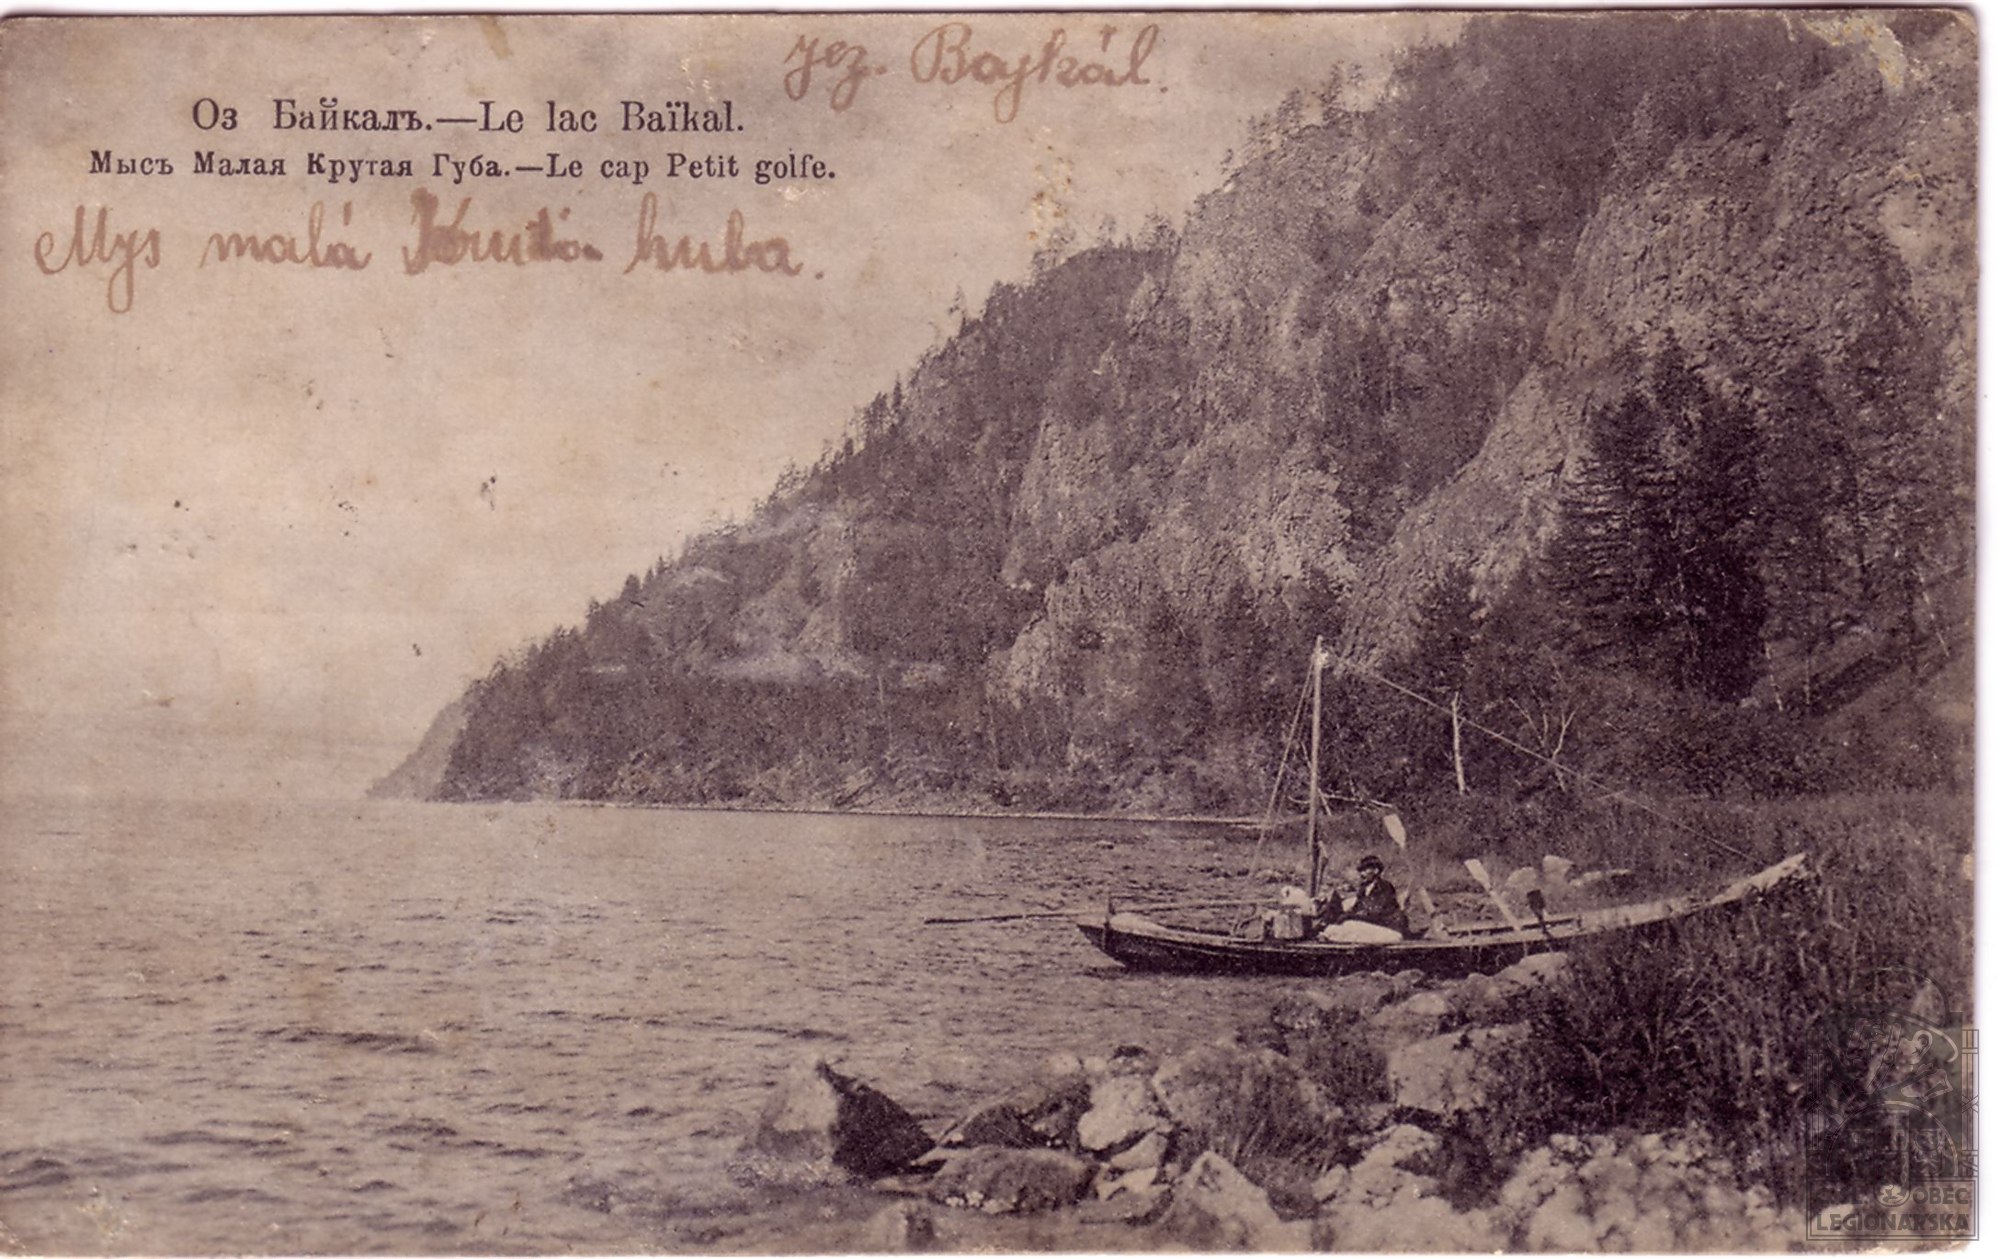 jez. Bajkál.
Оз Байкалъ.—Le lac Baïkal.
Мысъ Малая Крутая Губа.—Le cap Petit golfe.
Mys malá Krutá huba.
ČsL OBEC
LEGIONÁŘSKÁ